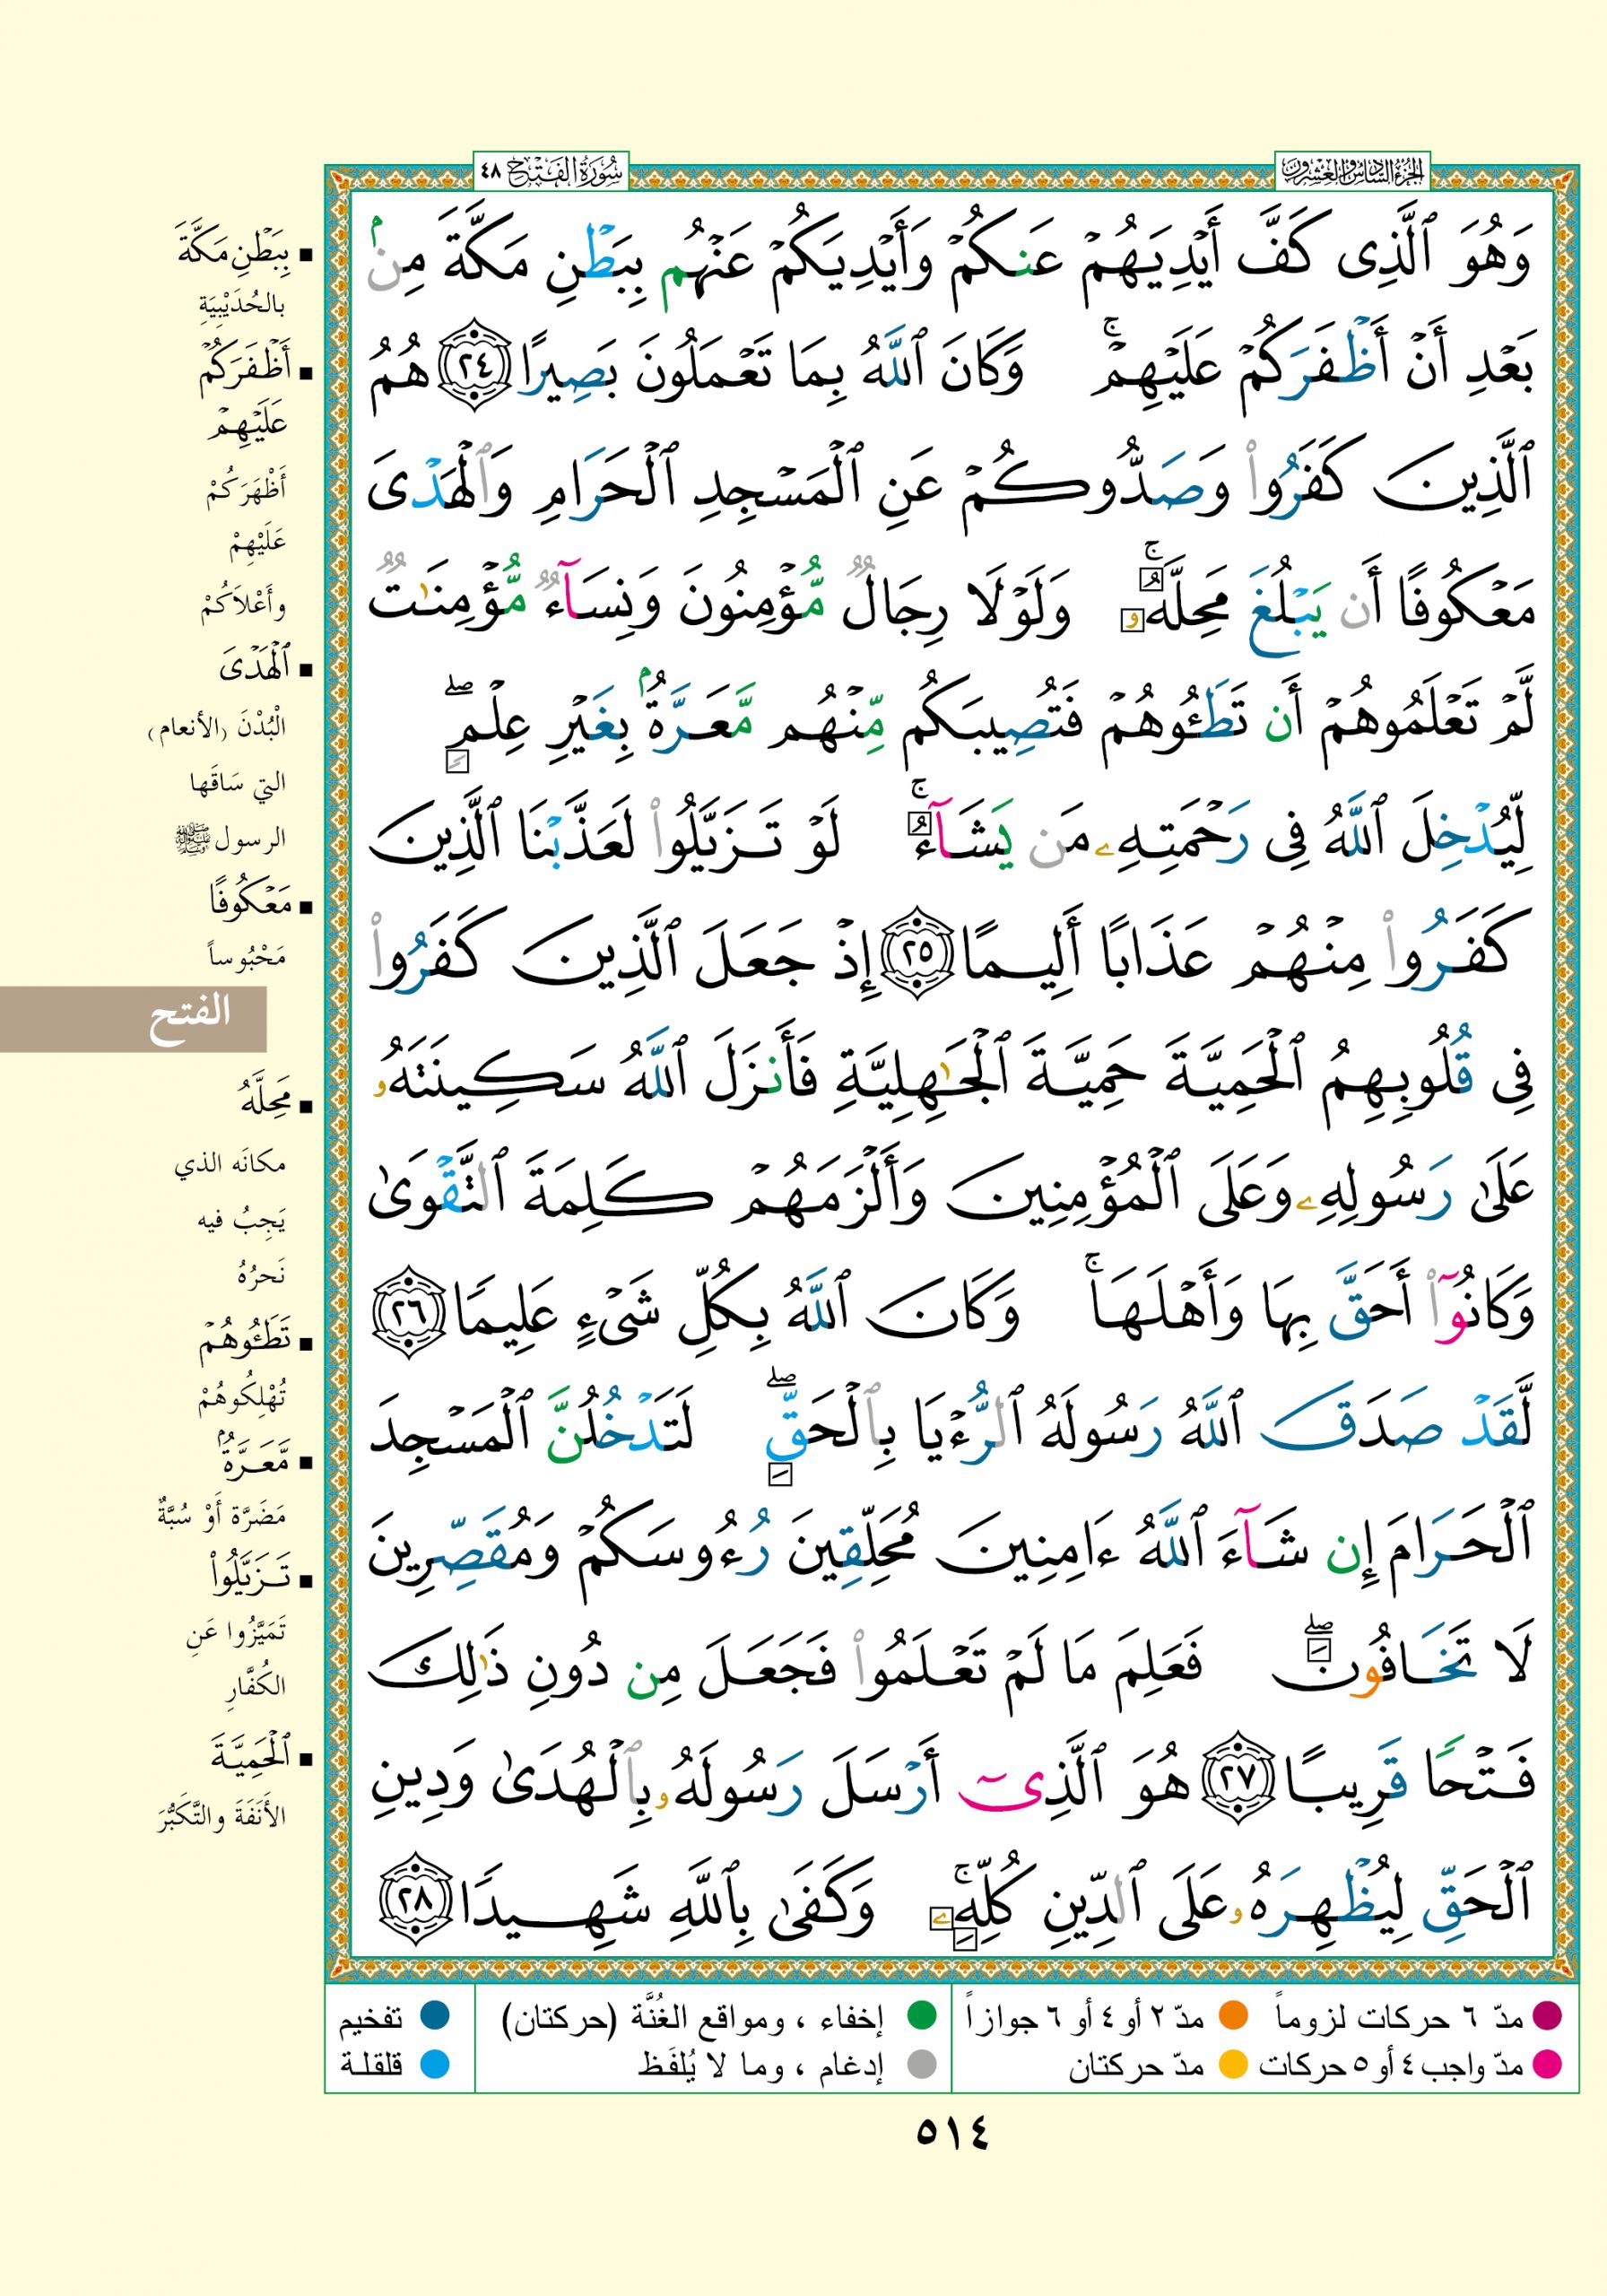 الجزء السادس والعشرون
سورة الفتح ٤٨
وَهُوَ ٱلَّذِى كَفَّ أَيْدِيَهُمْ عَنكُمْ وَأَيْدِيَكُمْ عَنْهُم بِبَطْنِ مَكَّةَ مِنۢ
بَعْدِ أَنْ أَظْفَرَكُمْ عَلَيْهِمْ ۚ وَكَانَ ٱللَّهُ بِمَا تَعْمَلُونَ بَصِيرًا ٢٤ هُمُ
ٱلَّذِينَ كَفَرُوا۟ وَصَدُّوكُمْ عَنِ ٱلْمَسْجِدِ ٱلْحَرَامِ وَٱلْهَدْىَ
مَعْكُوفًا أَن يَبْلُغَ مَحِلَّهُۥ ۚ وَلَوْلَا رِجَالٌ مُّؤْمِنُونَ وَنِسَآءٌ مُّؤْمِنَٰتٌ
لَّمْ تَعْلَمُوهُمْ أَن تَطَـُٔوهُمْ فَتُصِيبَكُم مِّنْهُم مَّعَرَّةٌۢ بِغَيْرِ عِلْمٍ ۖ
لِّيُدْخِلَ ٱللَّهُ فِى رَحْمَتِهِۦ مَن يَشَآءُ ۚ لَوْ تَزَيَّلُوا۟ لَعَذَّبْنَا ٱلَّذِينَ
كَفَرُوا۟ مِنْهُمْ عَذَابًا أَلِيمًا ٢٥ إِذْ جَعَلَ ٱلَّذِينَ كَفَرُوا۟
فِى قُلُوبِهِمُ ٱلْحَمِيَّةَ حَمِيَّةَ ٱلْجَٰهِلِيَّةِ فَأَنزَلَ ٱللَّهُ سَكِينَتَهُۥ
عَلَىٰ رَسُولِهِۦ وَعَلَى ٱلْمُؤْمِنِينَ وَأَلْزَمَهُمْ كَلِمَةَ ٱلتَّقْوَىٰ
وَكَانُوٓا۟ أَحَقَّ بِهَا وَأَهْلَهَا ۚ وَكَانَ ٱللَّهُ بِكُلِّ شَىْءٍ عَلِيمًا ٢٦
لَّقَدْ صَدَقَ ٱللَّهُ رَسُولَهُ ٱلرُّءْيَا بِٱلْحَقِّ ۖ لَتَدْخُلُنَّ ٱلْمَسْجِدَ
ٱلْحَرَامَ إِن شَآءَ ٱللَّهُ ءَامِنِينَ مُحَلِّقِينَ رُءُوسَكُمْ وَمُقَصِّرِينَ
لَا تَخَافُونَ ۖ فَعَلِمَ مَا لَمْ تَعْلَمُوا۟ فَجَعَلَ مِن دُونِ ذَٰلِكَ
فَتْحًا قَرِيبًا ٢٧ هُوَ ٱلَّذِىٓ أَرْسَلَ رَسُولَهُۥ بِٱلْهُدَىٰ وَدِينِ
ٱلْحَقِّ لِيُظْهِرَهُۥ عَلَى ٱلدِّينِ كُلِّهِۦ ۚ وَكَفَىٰ بِٱللَّهِ شَهِيدًا ٢٨
بِبَطْنِ مَكَّةَ
بالحُدَيْبِيَةِ
أَظْفَرَكُمْ
عَلَيْهِمْ
أَظْهَرَكُمْ
عَلَيْهِمْ
وأَعْلاَكُمْ
ٱلْهَدْىَ
الْبُدْنَ (الأنعام)
التي سَاقَها
الرسول ﷺ
مَعْكُوفًا
مَحْبُوساً
الفتح
مَحِلَّهُ
مكانَه الذي
يَجِبُ فيه
نَحرُهُ
تَطَـُٔوهُمْ
تُهْلِكُوهُمْ
مَّعَرَّةٌۢ
مَضَرَّة أَوْ سُبَّةٌ
تَزَيَّلُوا۟
تَمَيَّزُوا عَنِ
الكُفَّارِ
ٱلْحَمِيَّةَ
الأَنَفَةَ والتَّكَبُّرَ
مدّ ٦ حركات لزوماً
مدّ ٢ أو ٤ أو ٦ جوازاً
إخفاء ، ومواقع الغُنَّة (حركتان)
تفخيم
مدّ واجب ٤ أو ٥ حركات
مدّ حركتان
إدغام ، وما لا يُلفَظ
قلقلة
٥١٤